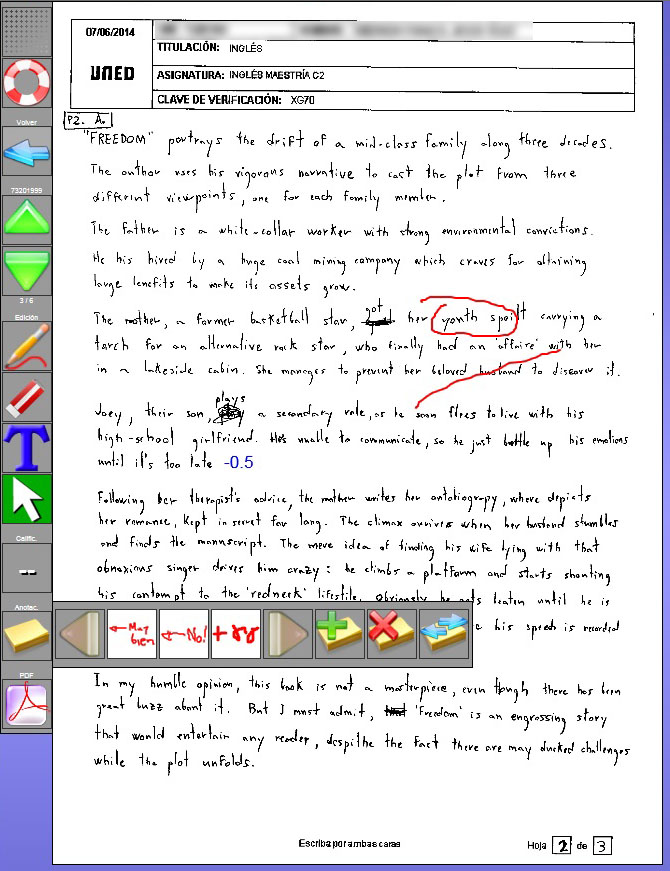 07/06/2014
TITULACIÓN: INGLÉS
UNED
ASIGNATURA: INGLÉS MAESTRÍA C2
CLAVE DE VERIFICACIÓN: XG70
Volver
73201999
3 / 6
Edición
T
Calific.
--
Anotac.
PDF
P2. A.
"FREEDOM" portrays the drift of a mid-class family along three decades.
The author uses his vigorous narrative to cast the plot from three
different viewpoints, one for each family member.
The father is a white-collar worker with strong environmental convictions.
He his hired by a huge coal mining company which craves for obtaining
large benefits to make its assets grow.
The mother, a former basketball star, got her youth spoilt carrying a
torch for an alternative rock star, who finally had an 'affaire' with her
in a lakeside cabin. She manages to prevent her beloved husband to discover it.
Joey, their son, plays a secondary role, as he soon flees to live with his
high-school girlfriend. He's unable to communicate, so he just bottle up his emotions
until it's too late -0.5
Following her therapist's advice, the mother writes her autobiograpy, where depicts
her romance, kept in secret for long. The climax arrives when her husband stumbles
and finds the manuscript. The mere idea of finding his wife lying with that
obnoxious singer drives him crazy: he climbs a platform and starts shouting
his contempt to the 'redneck' lifestile. Obviously he gets beaten until he is
his speech is recorded
← Muy bien
← No!
In my humble opinion, this book is not a masterpiece, even though there has been
great buzz about it. But I must admit, 'Freedom' is an engrossing story
that would entertain any reader, despithe the fact there are may ducked challenges
while the plot unfolds.
Escriba por ambas caras
Hoja 2 de 3